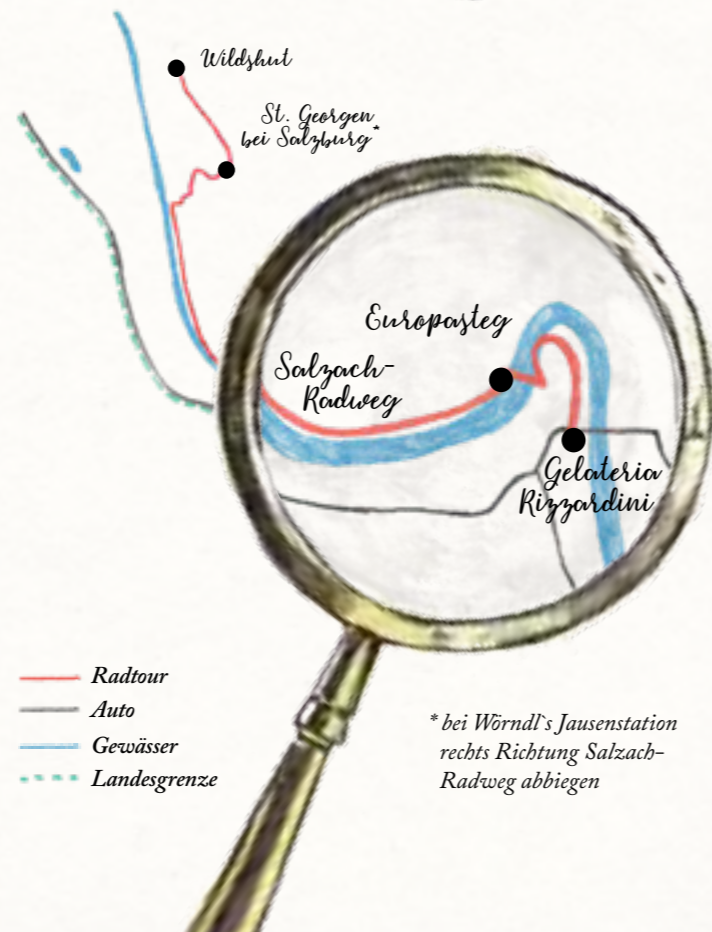 Wildshut
St. Georgen
bei Salzburg*
Europasteg
Salzach-
Radweg
Gelateria
Rizzardini
Radtour
Auto
Gewässer
Landesgrenze
* bei Wörndl`s Jausenstation
rechts Richtung Salzach-
Radweg abbiegen